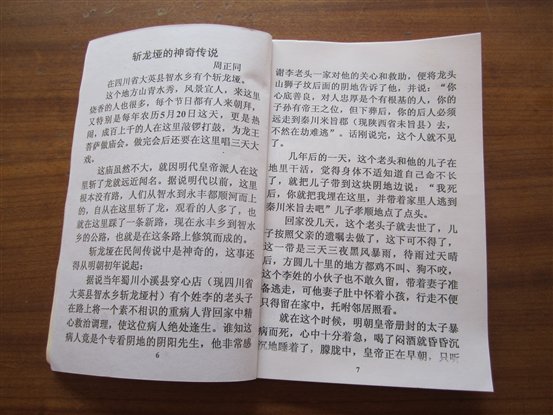 斩龙垭的神奇传说
周正同
在四川省大英县智水乡有个斩龙垭。
这个地方山青水秀，风景宜人，来这里
烧香的人也很多，每个节日都有人来朝拜，
又特别是每年农历5月20日这天，更是热
闹，成百上千的人在这里敲锣打鼓，为龙王
菩萨做庙会，做完会后还要在这里唱三天大
戏。
这庙虽然不大，就因明代皇帝派人在这
里斩了龙就远近闻名。据说明代以前，这里
根本没有路，人们从智水到永丰都顺河而上
的，自从在这里斩了龙，观看的人多了，也
就在这里踩了一条新路，现在永丰乡到智水
乡的公路，也就是在这条路上修筑而成的。
斩龙垭在民间传说中是神奇的，这事还
得从明朝初年说起：
据说当年蜀川小溪县穿心店（现四川省
大英县智水乡斩龙垭村）有个姓李的老头子
在路上将一个素不相识的重病人背回家中精
心救治调理，使这位病人绝处逢生。谁知这
病人竟是个专看阴地的阴阳先生，他非常感
6
谢李老头一家对他的关心和救助，便将龙头
山狮子坟后面的阴地告诉了他，并说：“你
心底善良，对人忠厚是个有根基的人，你的
子孙有帝王之位，但下葬后，你的后人必须
远走到秦川米旨郡（现陕西省未旨县）去，
不然在劫难逃”。话刚说完，这个人就不见
了。
几年后的一天，这个老头和他的儿子在
地里干活，觉得身体不适知道自己命不长
了，就把儿子带到这块阴地边说：“我死
后，你就把我埋在这里，并带着家里人逃到
秦川米旨去吧”儿子孝顺地点了点头。
回家没几天，这个老头子就去世了，儿
子按照父亲的遗嘱去做了，这下可不得了，
这一带是三天三夜黑风暴雨，待雨过天晴
后，方圆几十里的地方都鸡不叫、狗不咬。
这个李姓的小伙子也不敢久留，带着妻子准
备逃走，可他妻子肚中怀着小孩，行走不便
只得留在家中，托咐邻居照看。
就在这个时候，明朝皇帝册封的太子暴
病而死，心中十分着急，喝了闷酒就昏昏沉
沉地睡着了，朦胧中，皇帝正在早朝，只听
7